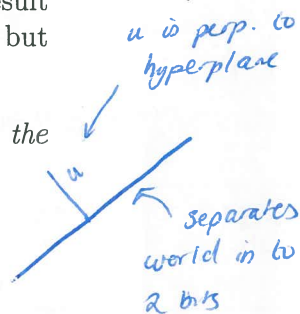 esult
but
u is perp. to
hyperplane
the
u
separates
world in to
2 bits